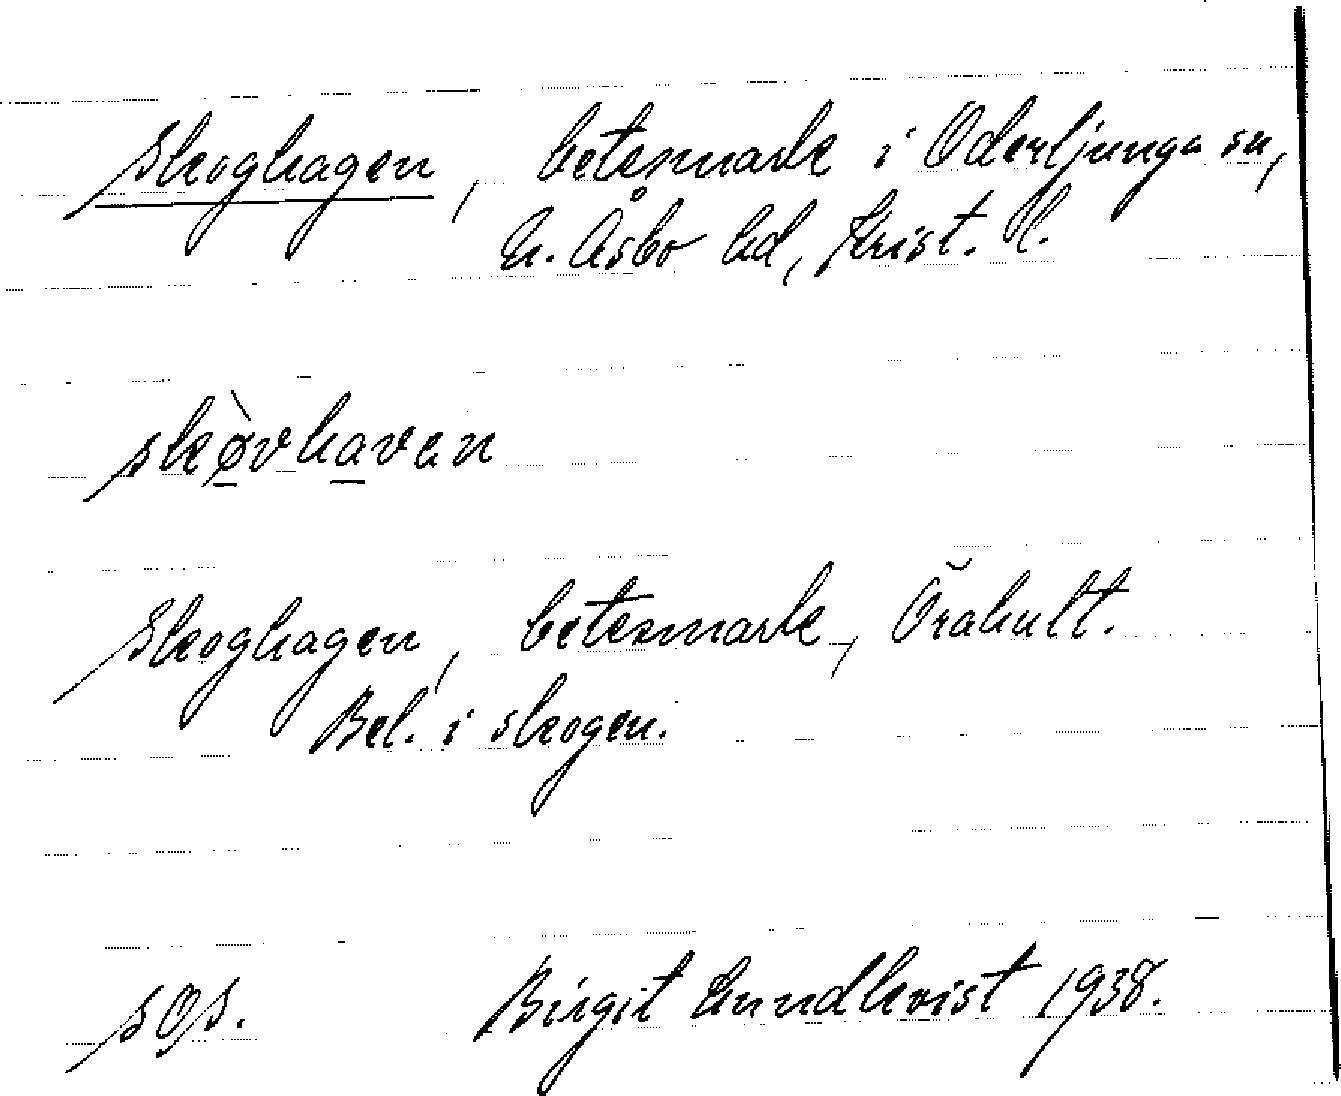 Skoghagen, betesmark i Oderljunga sn,
N. Åsbo hd, Krist. l.
skøvhavan
Skoghagen, betesmark, Örahult.
Bel. i skogen.
SOS. Birgit Lundkvist 1938.